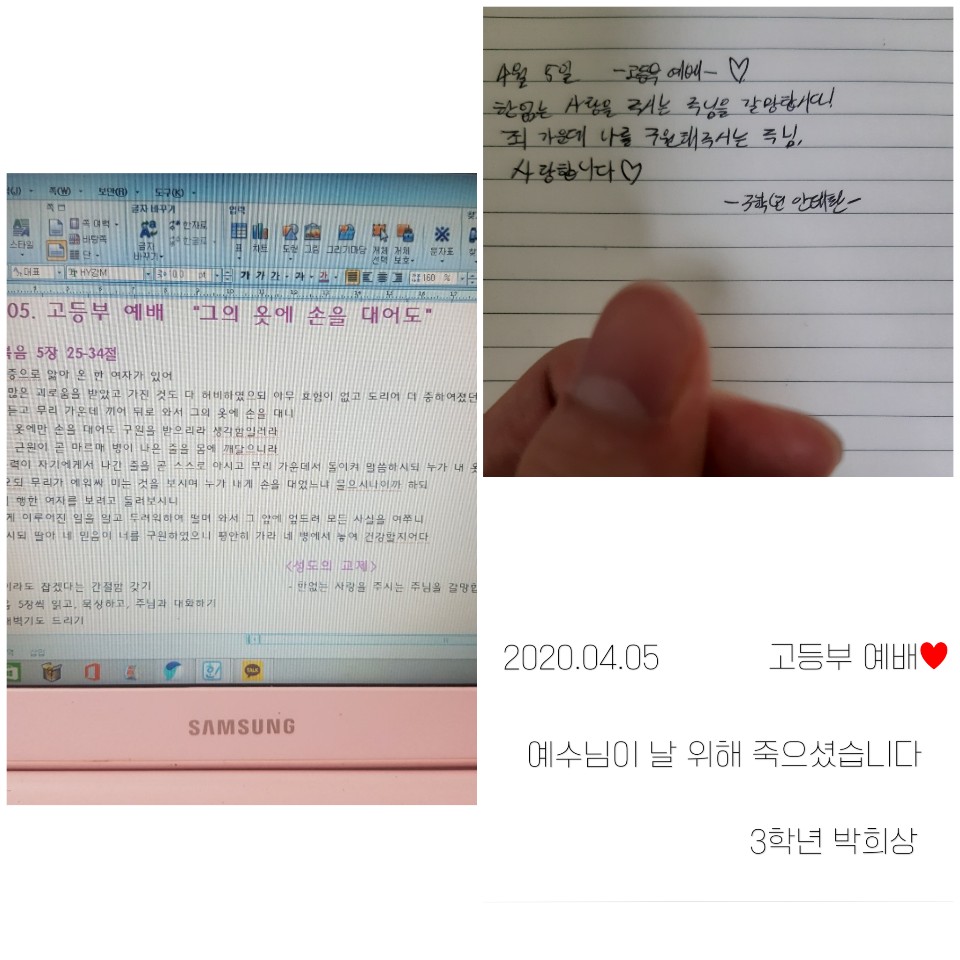 쪽(W) 보안(B) 도구(K)
쪽 글자 바꾸기 입력
스타일 쪽 여백 바탕쪽 단 글자 바꾸기 한자로 한글로 표 차트 도형 그림 그리기마당 개체 선택 개체 보호 문자표
대표 HY강M 10.0 pt 가 가 가 가 가 160 %
05. 고등부 예배 "그의 옷에 손을 대어도"
복음 5장 25-34절
중으로 앓아 온 한 여자가 있어
많은 괴로움을 받았고 가진 것도 다 허비하였으되 아무 효험이 없고 도리어 더 중하여졌던
듣고 무리 가운데 끼어 뒤로 와서 그의 옷에 손을 대니
옷에만 손을 대어도 구원을 받으리라 생각함일러라
근원이 곧 마르매 병이 나은 줄을 몸에 깨달으니라
력이 자기에게서 나간 줄을 곧 스스로 아시고 무리 가운데서 돌이켜 말씀하시되 누가 내 옷
오되 무리가 에워싸 미는 것을 보시며 누가 내게 손을 대었느냐 물으시나이까 하되
행한 여자를 보려고 둘러보시니
게 이루어진 일을 알고 두려워하여 떨며 와서 그 앞에 엎드려 모든 사실을 여쭈니
시되 딸아 네 믿음이 너를 구원하였으니 평안히 가라 네 병에서 놓여 건강할지어다
<성도의 교제>
이라도 잡겠다는 간절함 갖기 - 한없는 사랑을 주시는 주님을 갈망합
5장씩 읽고, 묵상하고, 주님과 대화하기
새벽기도 드리기
삽입
TALK
SAMSUNG
4월 5일 -고등부 예배- ♡
한없는 사랑을 주시는 주님을 갈망합시다!
죄 가운데 나를 구원해주시는 주님,
사랑합니다♡
-3학년 안태환-
2020.04.05 고등부 예배♥
예수님이 날 위해 죽으셨습니다
3학년 박희상